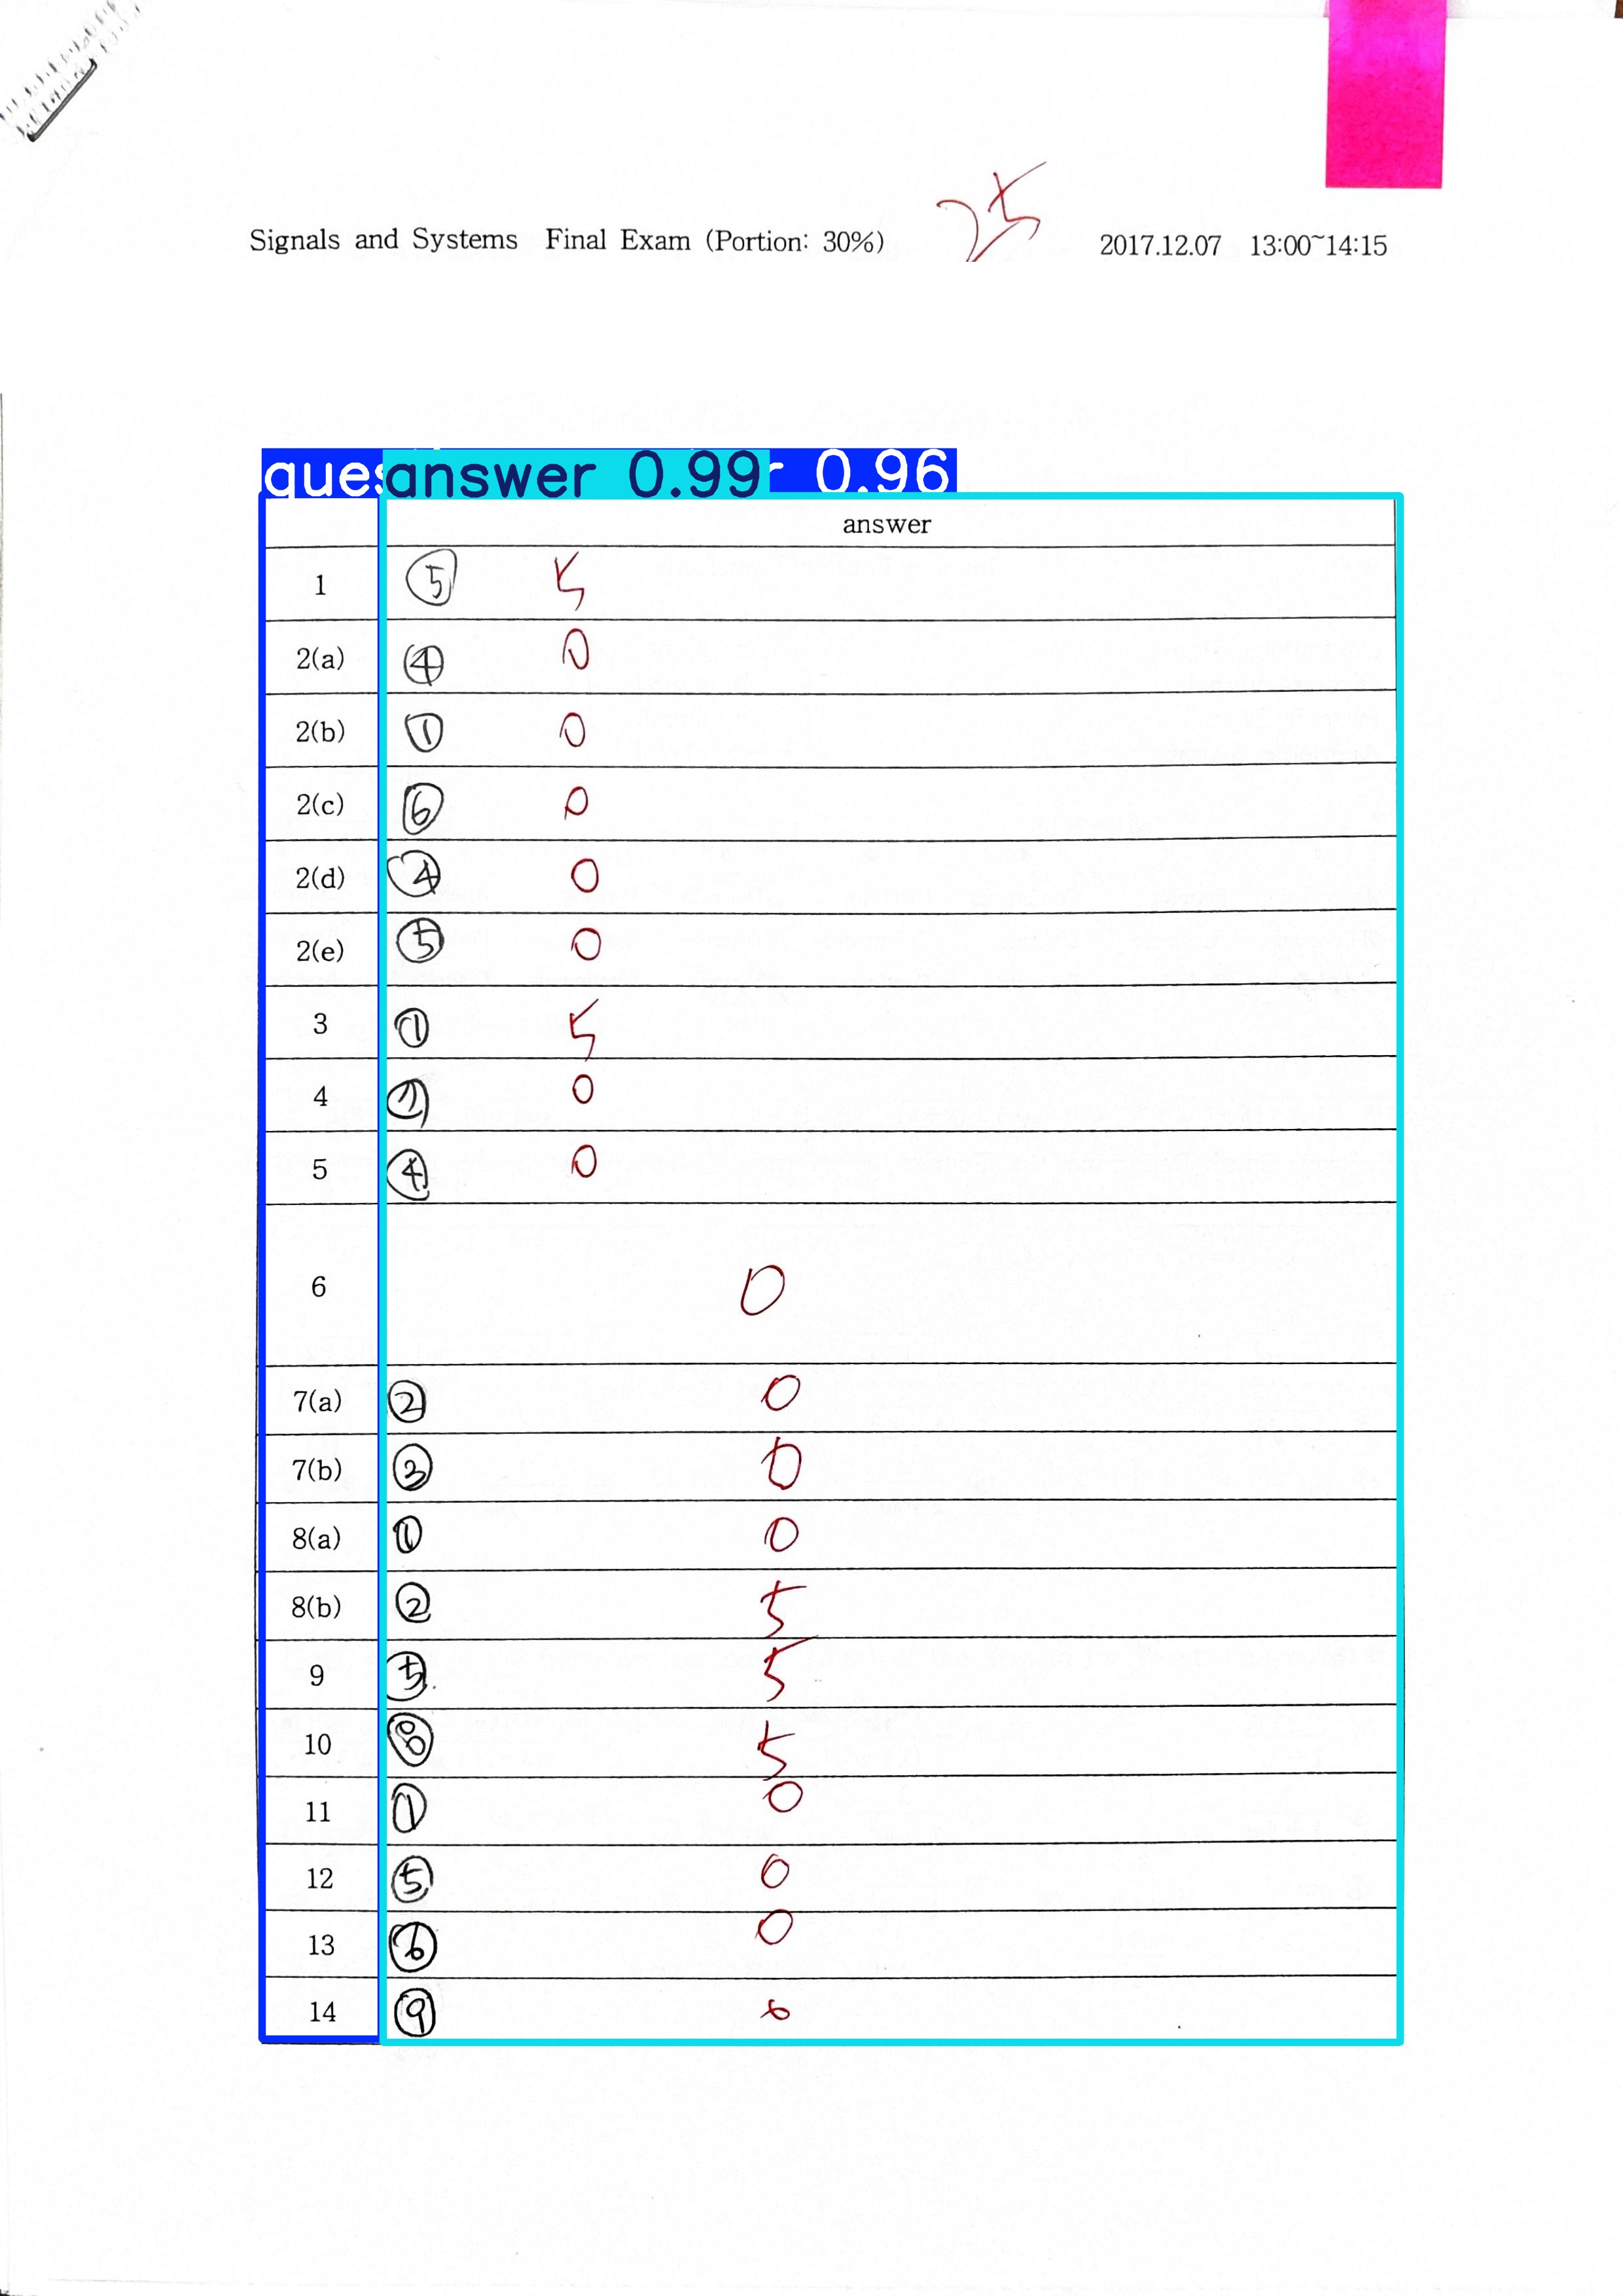 Signals and Systems Final Exam (Portion: 30%) 25 2017.12.07 13:00~14:15
answer 0.99 0.96
answer
1 ⑤ 5
2(a) ④ 0
2(b) ① 0
2(c) ⑥ 0
2(d) ④ 0
2(e) ⑤ 0
3 ① 5
4 0
5 ④ 0
6 0
7(a) ② 0
7(b) ③ 0
8(a) ① 0
8(b) ② 5
9 ⑤ 5
10 ⑧ 5
11 ① 0
12 ⑤ 0
13 ⑥ 0
14 ⑨ 0